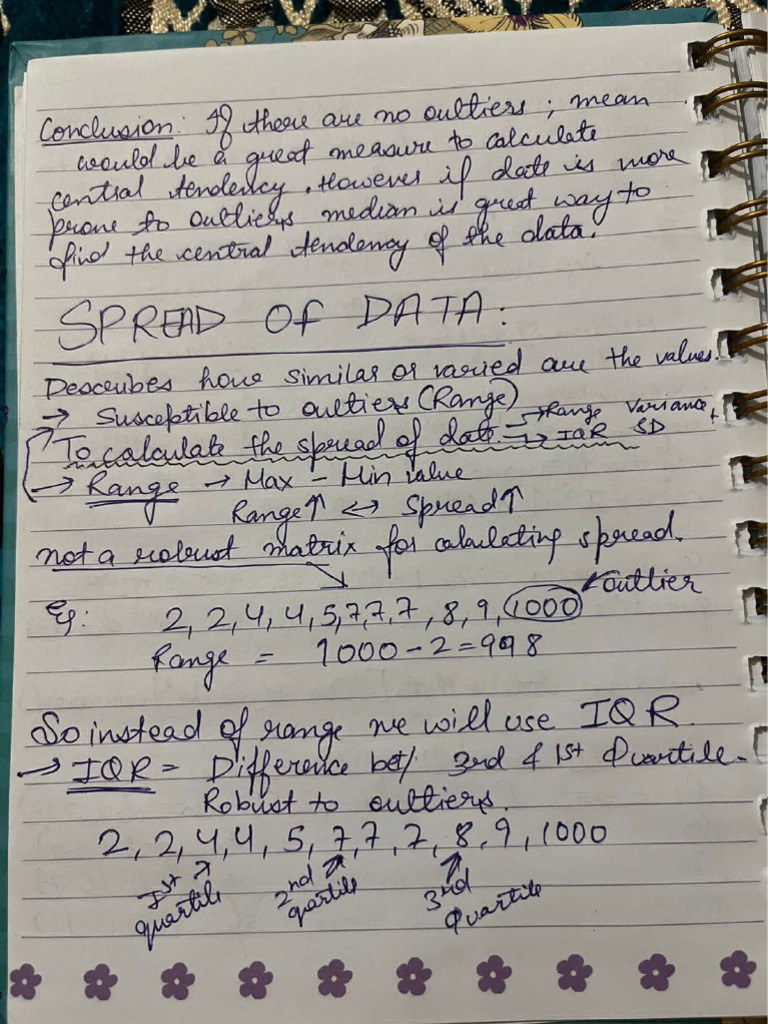 Conclusion: If there are no outliers ; mean
would be a great measure to calculate
central tendency. However if data is more
prone to outliers median is great way to
find the central tendency of the data.
SPREAD OF DATA:
Describes how similar or varied are the values.
→ Susceptible to outliers (Range)
To calculate the spread of data. → Range Variance,
→ IQR SD
→ Range → Max - Min value
Range↑ ↔ Spread↑
not a robust matrix for calculating spread.
Eg: 2, 2, 4, 4, 5, 7, 7, 7, 8, 9, 1000 ↙outlier
Range = 1000 - 2 = 998
So instead of range we will use IQR.
→ IQR = Difference bet/ 3rd & 1st Quartile.
Robust to outliers.
2, 2, 4, 4, 5, 7, 7, 7, 8, 9, 1000
1st quartile 2nd quartile 3rd Quartile